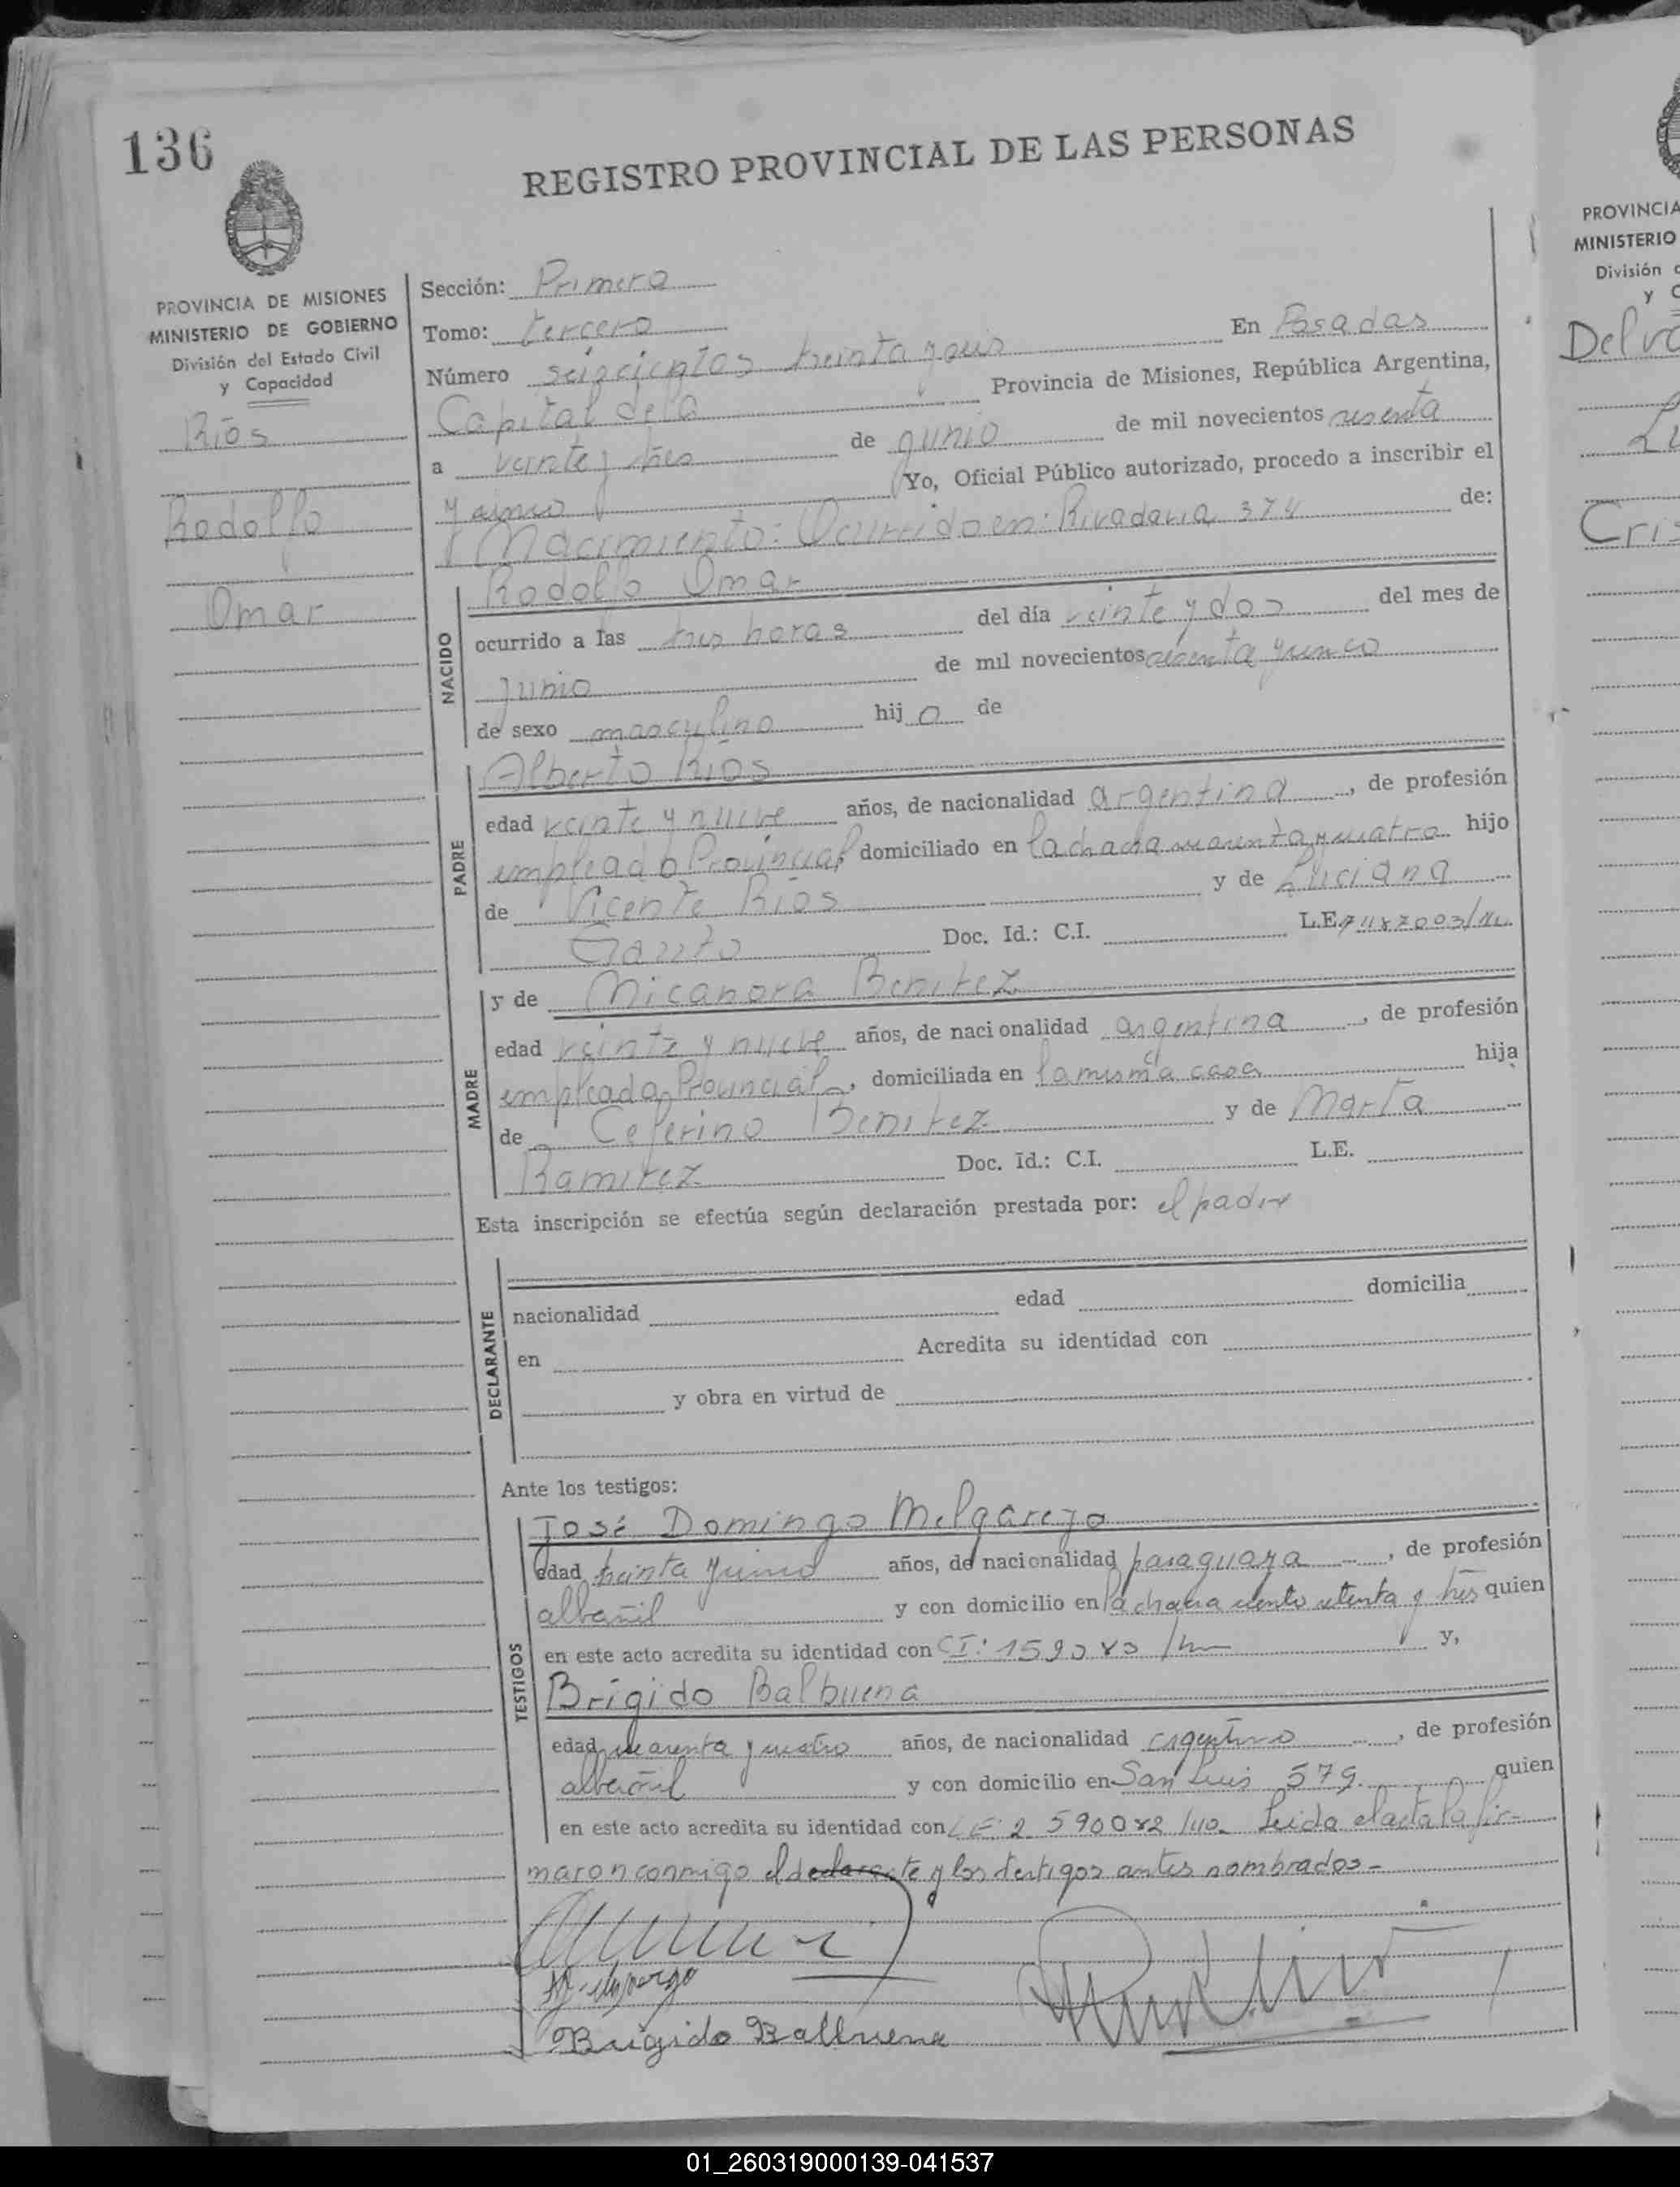 136
REGISTRO PROVINCIAL DE LAS PERSONAS
PROVINCIA DE MISIONES
MINISTERIO DE GOBIERNO
División del Estado Civil
y Capacidad
Ríos
Rodolfo
Omar
Sección: Primera
Tomo: tercero
Número seiscientos treinta y seis En Posadas
Capital de la Provincia de Misiones, República Argentina,
a veinte y tres de junio de mil novecientos sesenta
y cinco Yo, Oficial Público autorizado, procedo a inscribir el
Nacimiento: Ocurrido en: Rivadavia 374 de:
NACIDO
Rodolfo Omar
ocurrido a las tres horas del día veinte y dos del mes de
junio de mil novecientos sesenta y cinco
de sexo masculino hijo de
PADRE
Alberto Ríos
edad veinte y nueve años, de nacionalidad argentina, de profesión
empleado Provincial domiciliado en la chacra cuarenta y cuatro hijo
de Vicente Ríos y de Luciana
Doc. Id.: C.I. L.E.
MADRE
y de Nicanora Benitez
edad veinte y nueve años, de nacionalidad argentina, de profesión
empleada Provincial, domiciliada en la misma casa hija
de Ceferino Benitez y de Marta
Ramirez Doc. Id.: C.I. L.E.
Esta inscripción se efectúa según declaración prestada por: el padre
DECLARANTE
nacionalidad edad domicilia
en Acredita su identidad con
y obra en virtud de
Ante los testigos:
TESTIGOS
José Domingo Melgarejo
edad treinta y cinco años, de nacionalidad paraguaya, de profesión
albañil y con domicilio en la chacra ciento setenta y tres quien
en este acto acredita su identidad con CI: y,
Brígido Balbuena
edad cuarenta y cuatro años, de nacionalidad argentino, de profesión
albañil y con domicilio en San Luis 579. quien
en este acto acredita su identidad con LE 2.590082 Leida el acta la fir-
maron conmigo el declarante y los testigos antes nombrados-
Brigido Balbuena
PROVINCIA
MINISTERIO
División
y C
Delva
Cris
01_260319000139-041537